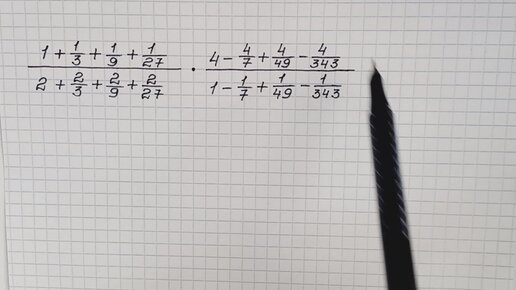 (1 + 1/3 + 1/9 + 1/27) / (2 + 2/3 + 2/9 + 2/27) · (4 - 4/7 + 4/49 - 4/343) / (1 - 1/7 + 1/49 - 1/343)